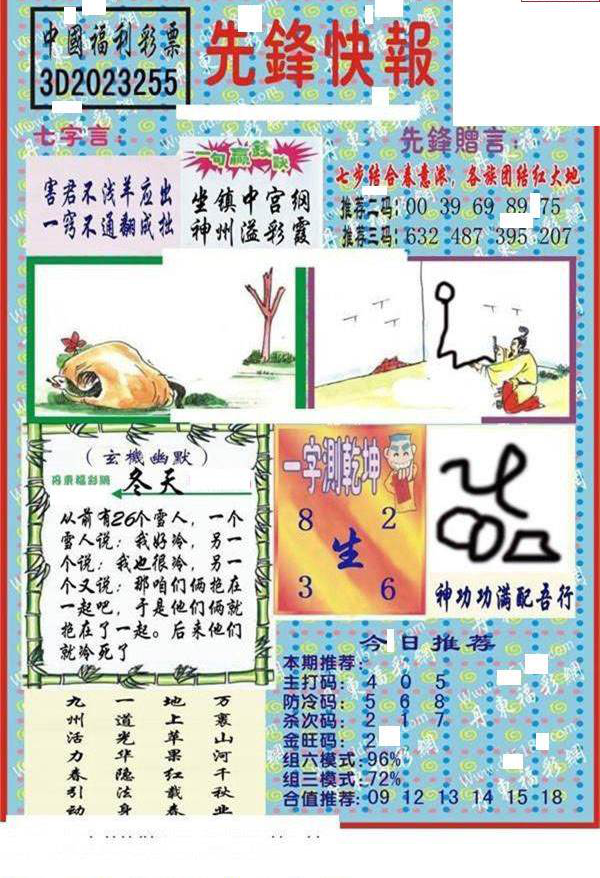 中國福利彩票
3D2023255
先鋒快報
七字言：
害君不浅羊应出
一窍不通翻成拙
一句贏錢訣
坐镇中宫纲
神州溢彩霞
先鋒贈言：
七步结合春意浓，各族团结红大地
推荐二码：00 39 69 89 75
推荐三码：632 487 395 207
（玄機幽默）
丹東福彩網
冬天
从前有26个雪人，一个
雪人说：我好冷，另一
个说：我也很冷，另一
个又说：那咱们俩抱在
一起吧，于是他们俩就
抱在了一起。后来他们
就冷死了
一字測乾坤
8 2
生
3 6
神功功满配吾行
今日推荐
本期推荐：
主打码：4 0 5
防冷码：5 6 8
杀次码：2 1 7
金旺码：2
组六模式：96%
组三模式：72%
合值推荐：09 12 13 14 15 18
万裏山河千秋业
地上苹果红载春
一道光华隐法身
九州活力春引动